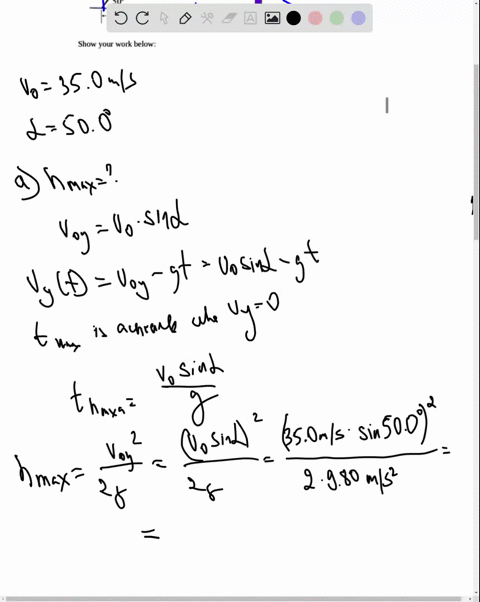 Show your work below:
v₀ = 35.0 m/s
α = 50.0°
a) hmax = ?
v₀y = v₀ · sinα
vy(t) = v₀y − gt = v₀ sinα − gt
t max is when vy = 0
t hmax = v₀ sinα / g
hmax = v₀y² / 2g = (v₀ sinα)² / 2g = (35.0 m/s · sin 50.0°)² / 2 · 9.80 m/s² =
=